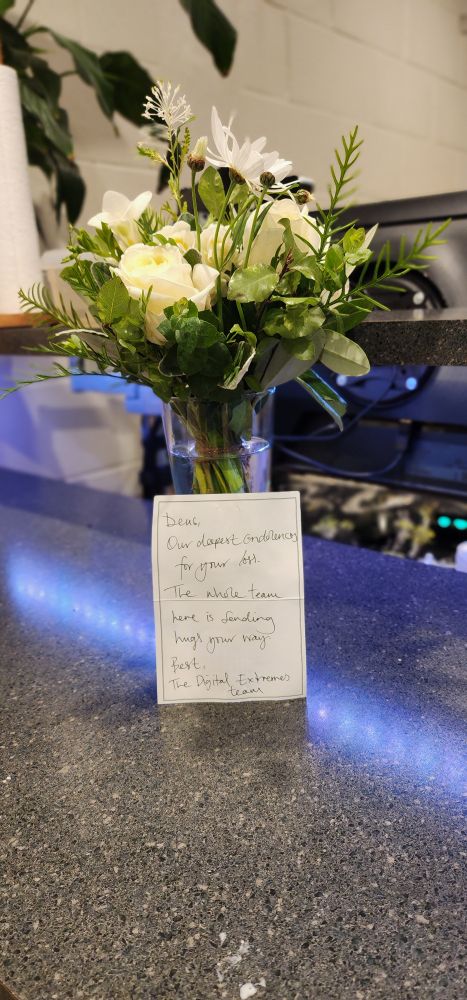 Deus,
Our deepest Condolences
for your loss.
The whole team
here is sending
hugs your way.
Best,
The Digital Extremes
team